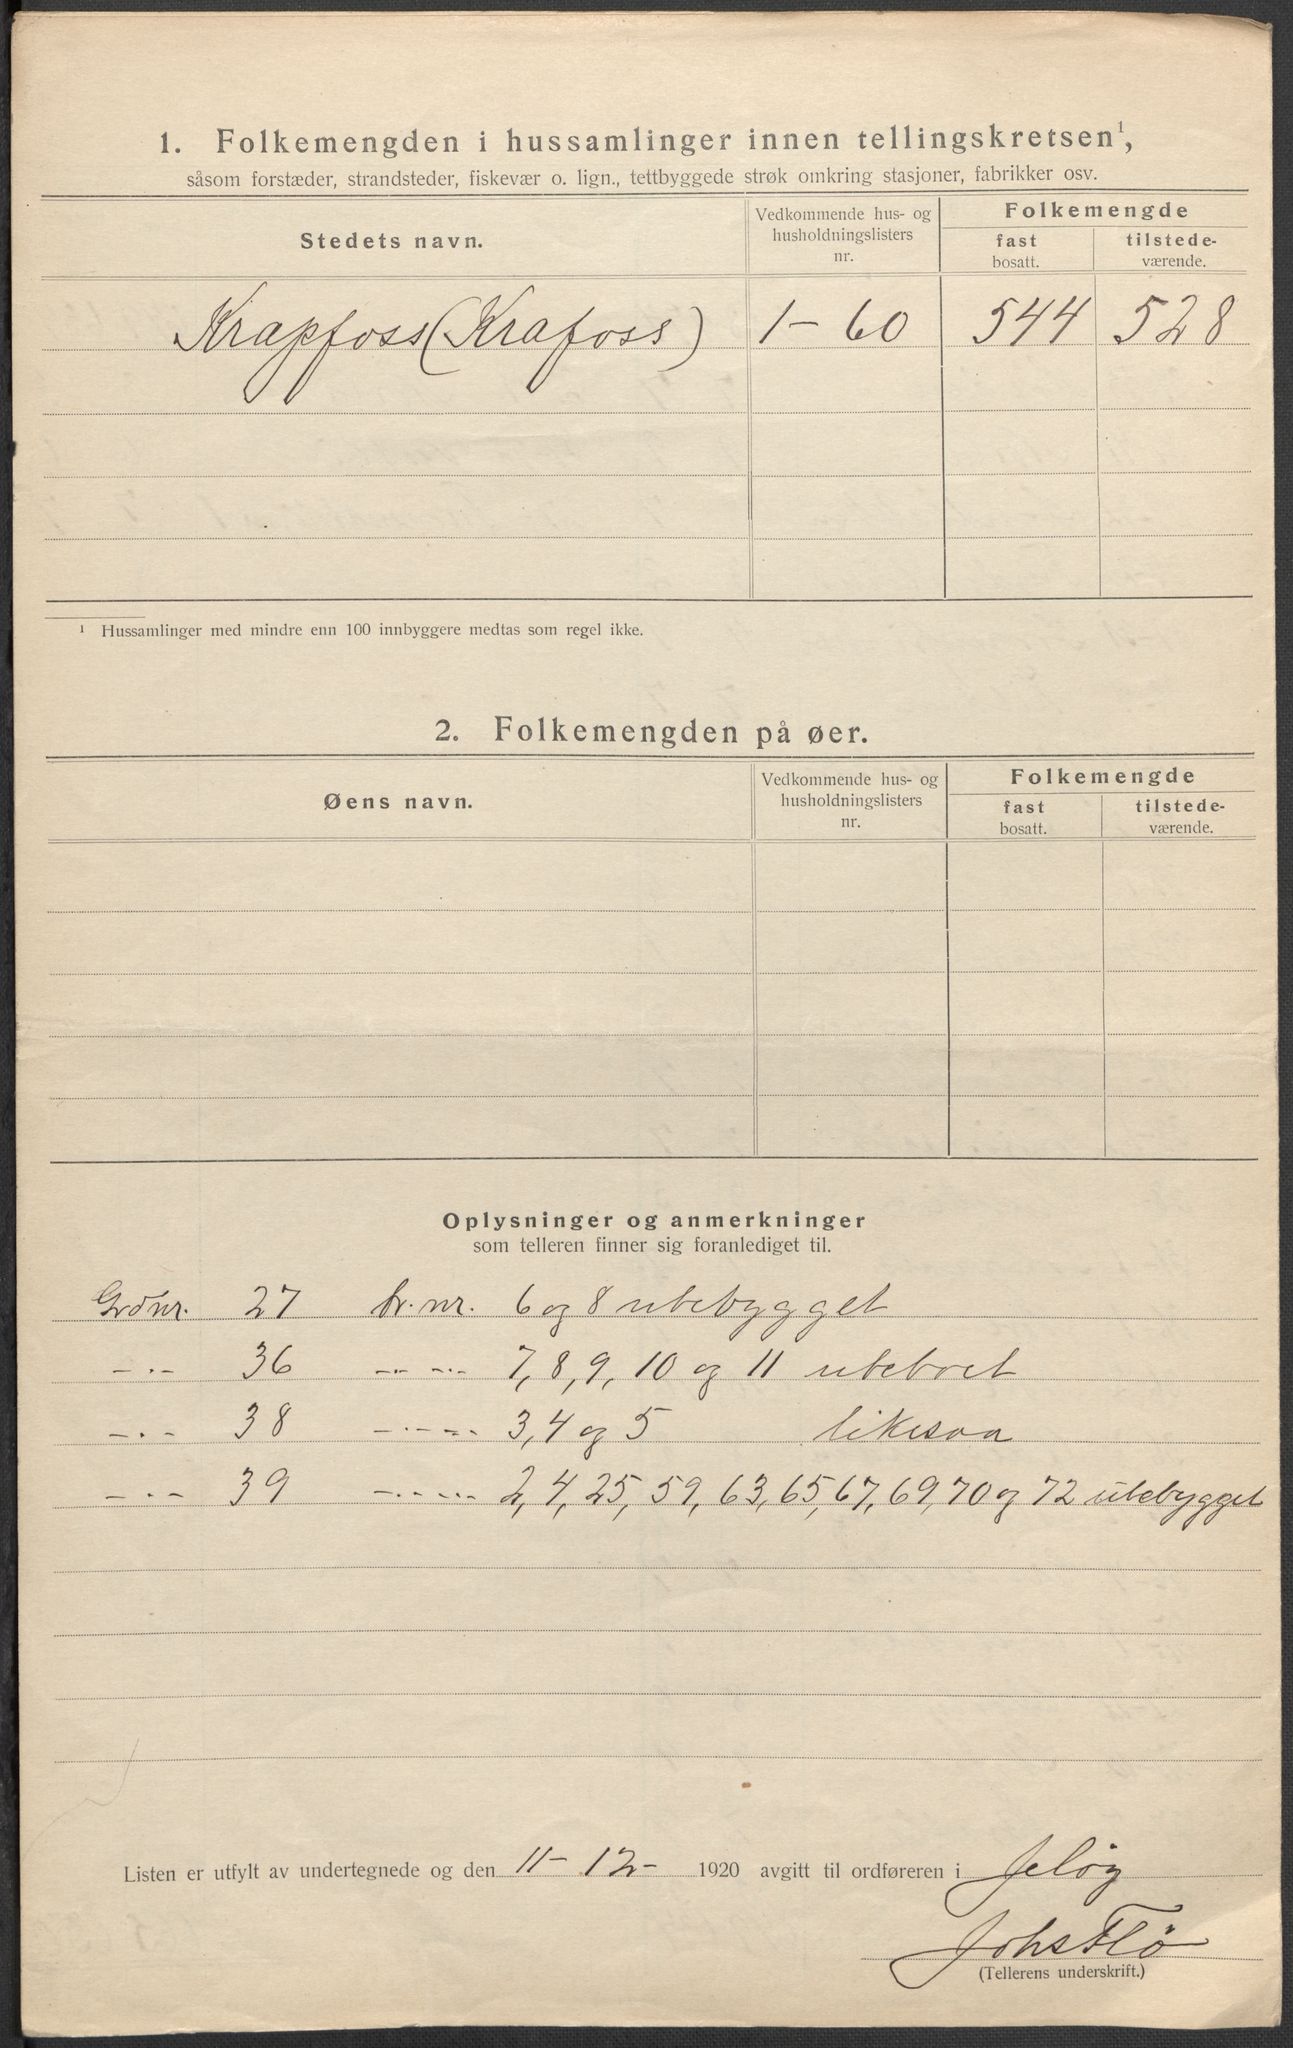 1. Folkemengden i hussamlinger innen tellingskretsen¹,
såsom forstæder, strandsteder, fiskevær o. lign., tettbyggede strøk omkring stasjoner, fabrikker osv.
Stedets navn.
Vedkommende hus- og husholdningslisters nr.
Folkemengde
fast bosatt.
tilstede-værende.
Krapfoss (Krafoss) 1-60 544 528
¹ Hussamlinger med mindre enn 100 innbyggere medtas som regel ikke.
2. Folkemengden på øer.
Øens navn.
Vedkommende hus- og husholdningslisters nr.
Folkemengde
fast bosatt.
tilstede-værende.
Oplysninger og anmerkninger
som telleren finner sig foranlediget til.
Grdnr. 27 br. nr. 6 og 8 ubebygget
-"- 36 -"- 7, 8, 9, 10 og 11 ubeboet
-"- 38 -"- 3, 4 og 5 likesaa
-"- 39 -"- 2, 4, 25, 59, 63, 65, 67, 69, 70 og 72 ubebygget
Listen er utfylt av undertegnede og den 11-12- 1920 avgitt til ordføreren i Jeløy
Johs Flø
(Tellerens underskrift.)